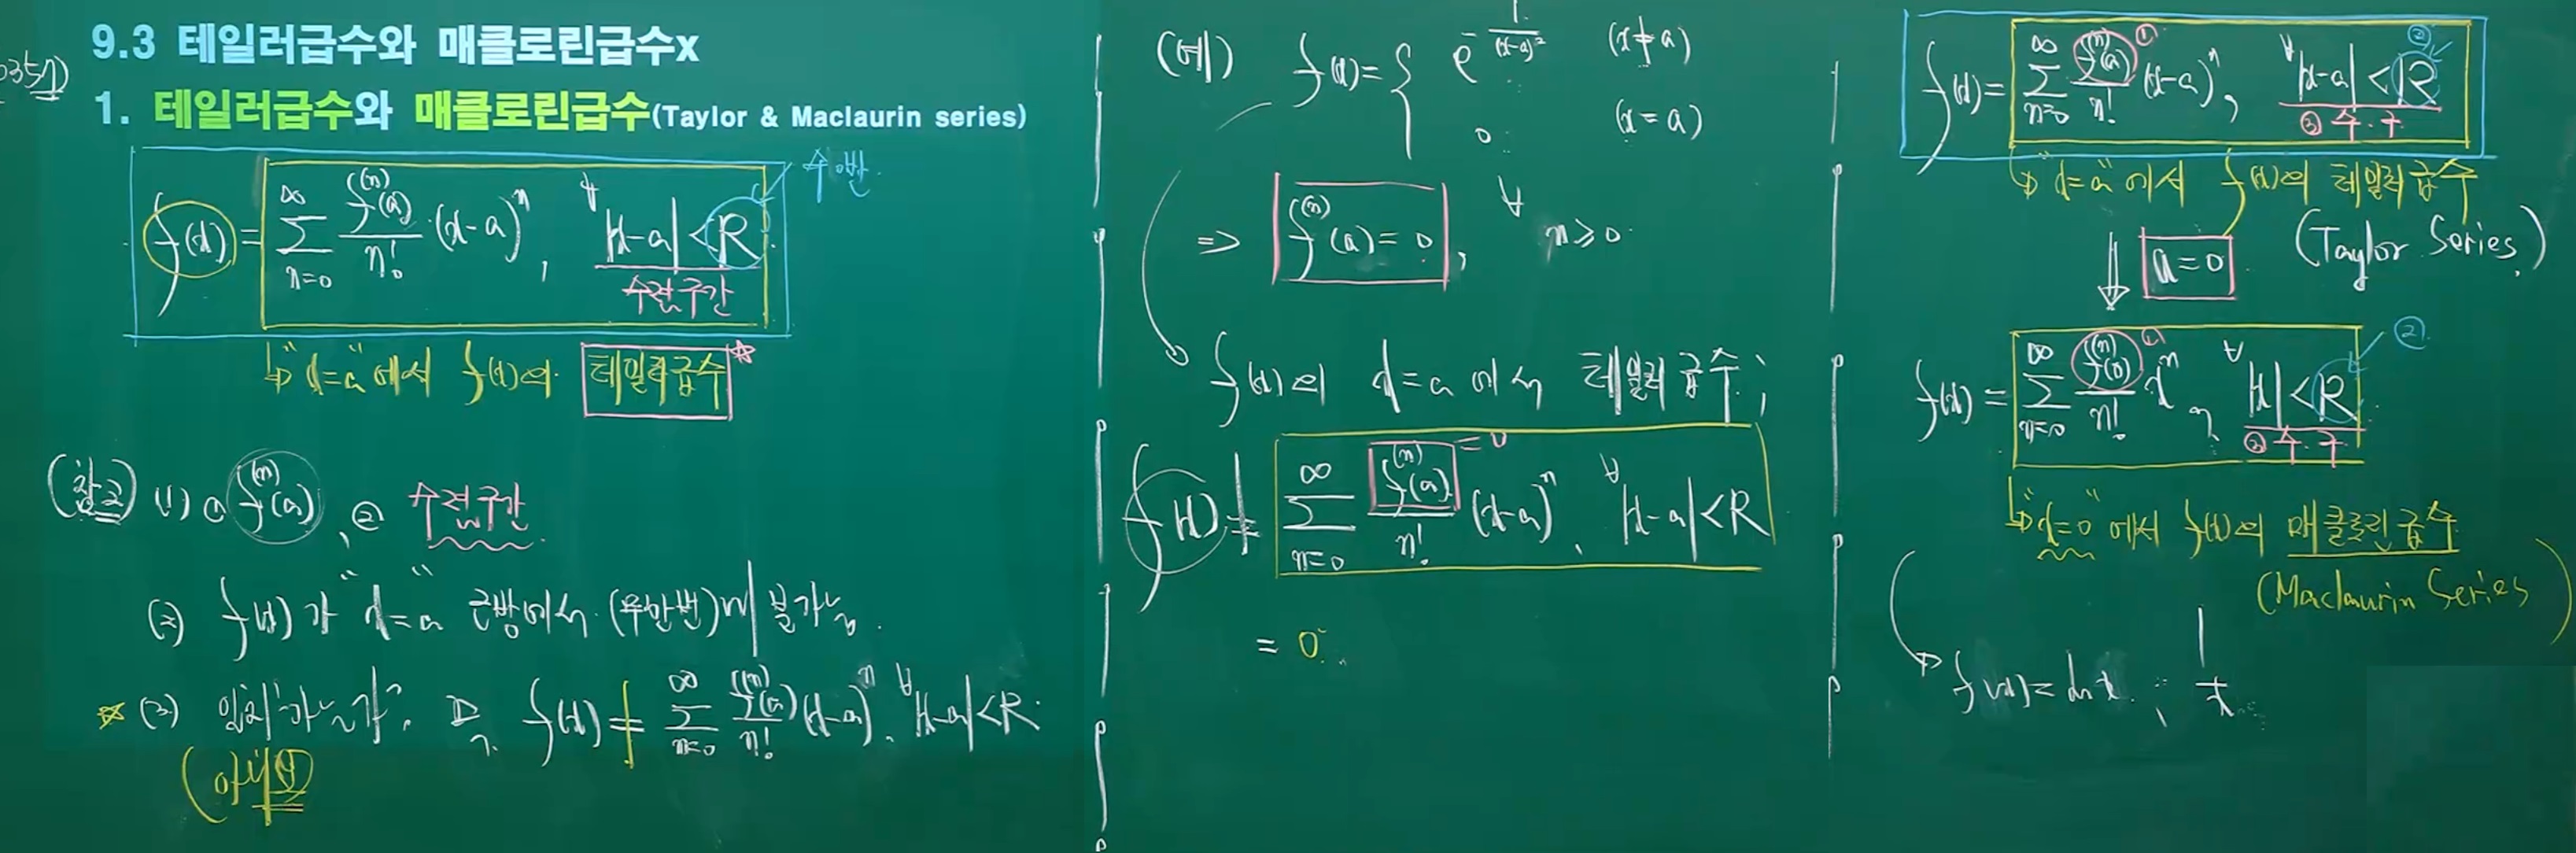 9.3 테일러급수와 매클로린급수x
1. 테일러급수와 매클로린급수(Taylor & Maclaurin series)
f(x) = ∑_{n=0}^{∞} f^{(n)}(a)/n! · (x-a)^n, ∀|x-a| < R
수·반
수렴구간
"x=a"에서 f(x)의 테일러급수 ☆
(참고) (1) ① f^{(n)}(a), ② 수렴구간
(2) f(x)가 "x=a" 근방에서 (무한번) 미분가능.
☆ (3)
f(x) ≠ ∑_{n=0}^{∞} f^{(n)}(a)/n! (x-a)^n, ∀|x-a| < R
(예) f(x) = { e^{-1/(x-a)²} (x≠a)
0 (x=a)
⇒ f^{(n)}(a) = 0, ∀ n ≥ 0
f(x)의 x=a에서 테일러급수;
f(x) ≠ ∑_{n=0}^{∞} f^{(n)}(a)/n! (x-a)^n, ∀|x-a| < R
= 0
= 0
f(x) = ∑_{n=0}^{∞} f^{(n)}(a)/n! (x-a)^n, ∀|x-a| < R
① ②
③ 수·구
"x=a"에서 f(x)의 테일러급수
(Taylor Series)
⇓ a=0
f(x) = ∑_{n=0}^{∞} f^{(n)}(0)/n! x^n, ∀|x| < R
② 
수·구
"x=0"에서 f(x)의 매클로린급수
(Maclaurin Series)
f(x) = ln x, 1/x